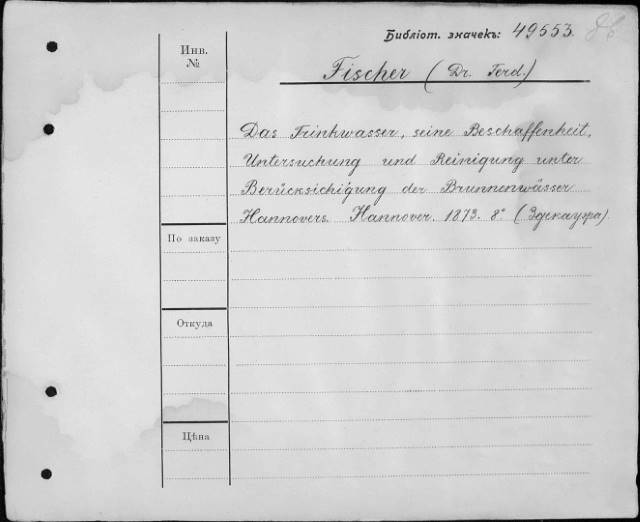 Библіот. значекъ: 49553.
Инв.
№
Fischer (Dr. Ferd.)
Das Trinkwasser, seine Beschaffenheit,
Untersuchung und Reinigung unter
Berücksichigung der Brunnenwässer
Hannovers. Hannover. 1873. 8° (Эдекауфа).
По заказу
Откуда
Цѣна